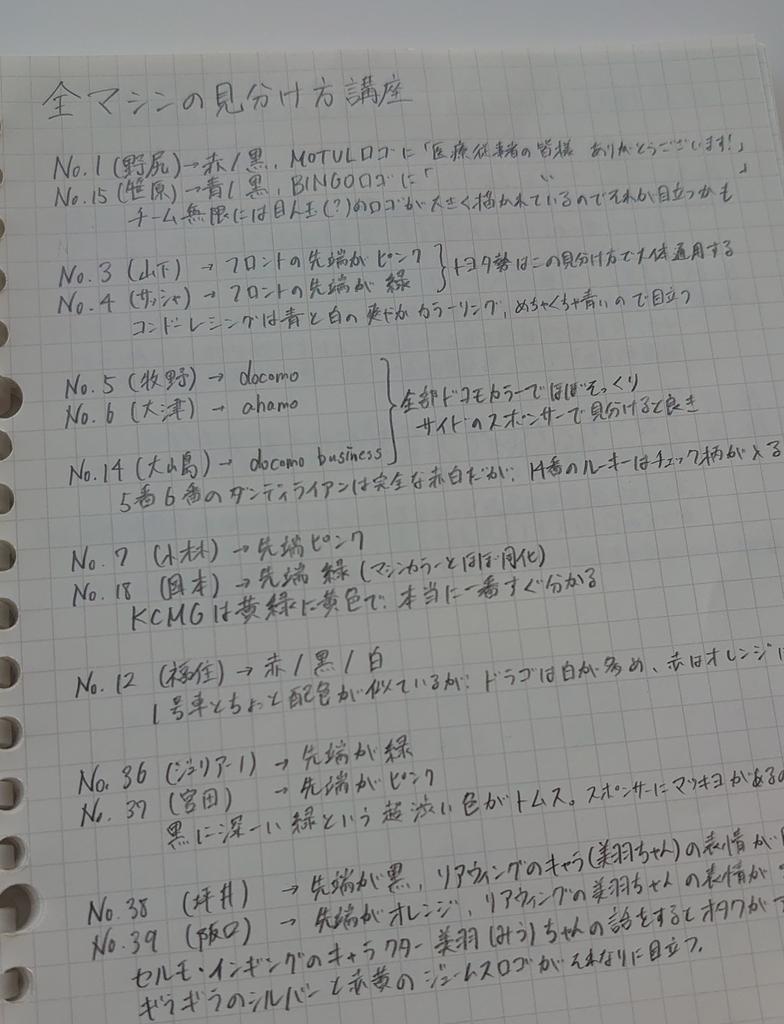 全マシンの見分け方講座
No.1 (野尻)→赤/黒, MOTULロゴに「医療従事者の皆様 ありがとうございます!」
No.15 (笹原)→青/黒, BINGOロゴに「 〃 」
チーム無限には目ん玉(?)のロゴが大きく描かれているのでそれが目立つかも
No.3 (山下) → フロントの先端がピンク
No.4 (サッシャ) → フロントの先端が緑
トヨタ勢はこの見分け方で大体通用する
コンドーレーシングは青と白の爽やかカラーリング, めちゃくちゃ青いので目立つ
No.5 (牧野) → docomo
No.6 (大津) → ahamo
No.14 (大嶋) → docomo business
全部ドコモカラーでほぼそっくり
サイドのスポンサーで見分けると良き
5番6番のダンディライアンは完全な赤白だが、14番のルーキーはチェック柄が入る
No.7 (小林) → 先端ピンク
No.18 (国本) → 先端 緑 (マシンカラーとほぼ同化)
KCMGは黄緑に黄色で、本当に一番すぐ分かる
No.12 (福住) → 赤/黒/白
1号車とちょっと配色が似ているが、ドラゴは白が多め、赤はオレンジに
No.36 (ジュリアーノ) → 先端が緑
No.37 (宮田) → 先端がピンク
黒に深ーい緑という超渋い色がトムス。スポンサーにマツキヨがあるの
No.38 (坪井) → 先端が黒, リアウィングのキャラ(美羽ちゃん)の表情が
No.39 (阪口) → 先端がオレンジ, リアウィングの美羽ちゃんの表情が
セルモ・インギングのキャラクター美羽(みう)ちゃんの話をするとオタクが
ギラギラのシルバーと赤黄のジェームスロゴがそれなりに目立つ.